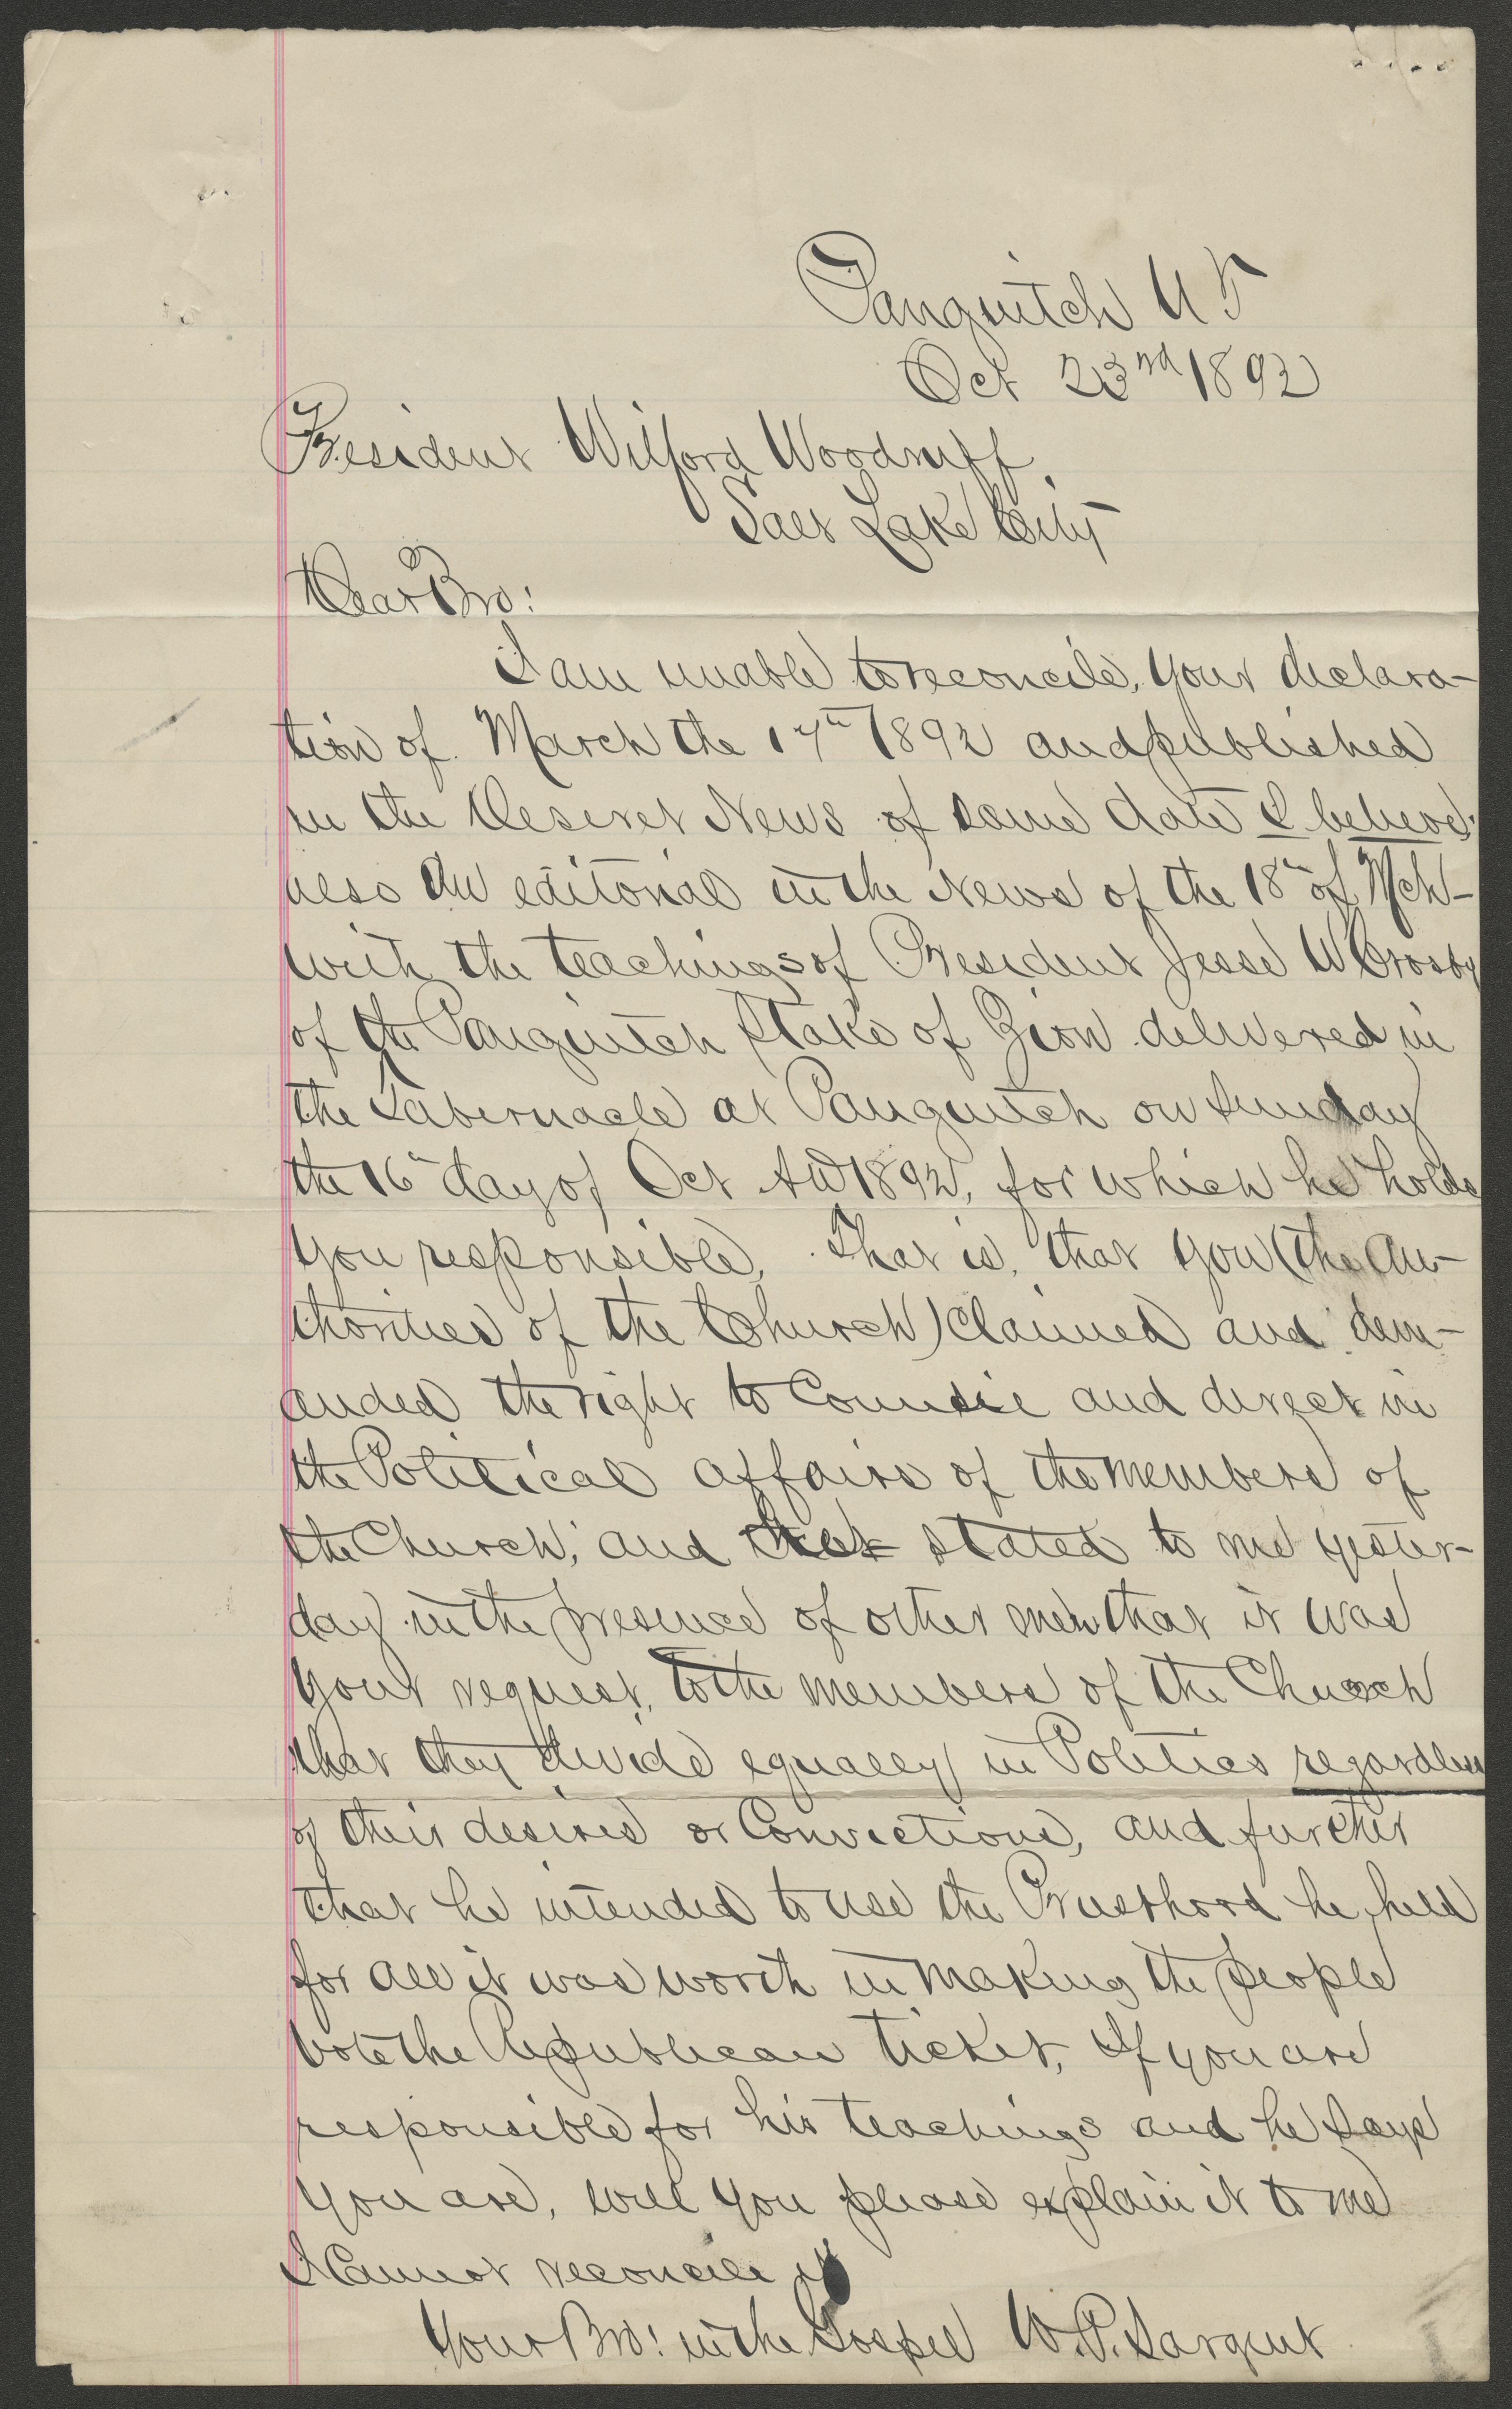 Panguitch U T
Oct 23rd 1892
President Wilford Woodruff,
Salt Lake City
Dear Bro:
I am unable to reconcile, your declara-
tion of March the 17th 1892 and published
in the Deseret News of same date I believe;
also an editorial in the News of the 18th of Mch-
with the teachings of President Jesse W Crosby
of the Panguitch Stake of Zion delivered in
the Tabernacle at Panguitch on Sunday
the 16th day of Oct AD 1892, for which he holds
you responsible, That is, that you (the Au-
thorities of the Church) claimed and dem-
anded the right to Council and direct in
the Political affairs of the members of
the Church; and stated to me yester-
day in the presence of other men that it was
your request, to the members of the Church
that they divide equally in Politics regardless
of their desires or Convictions, and further
that he intended to use the Priesthood he held
for all it was worth in making the people
vote the Republican ticket, If you are
responsible for his teachings and he says
you are, will you please explain it to me
I Cannot reconcile it
Your Bro: in the Gospel W. P. Sargent